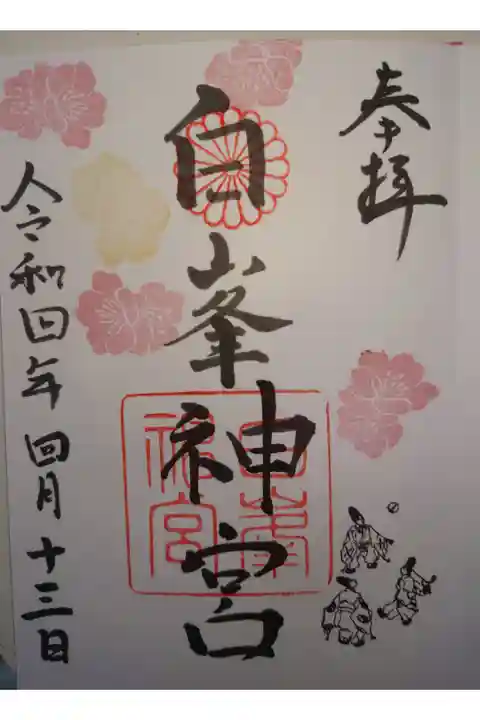 奉拝
白峯神宮
白峯神宮
令和四年四月十三日